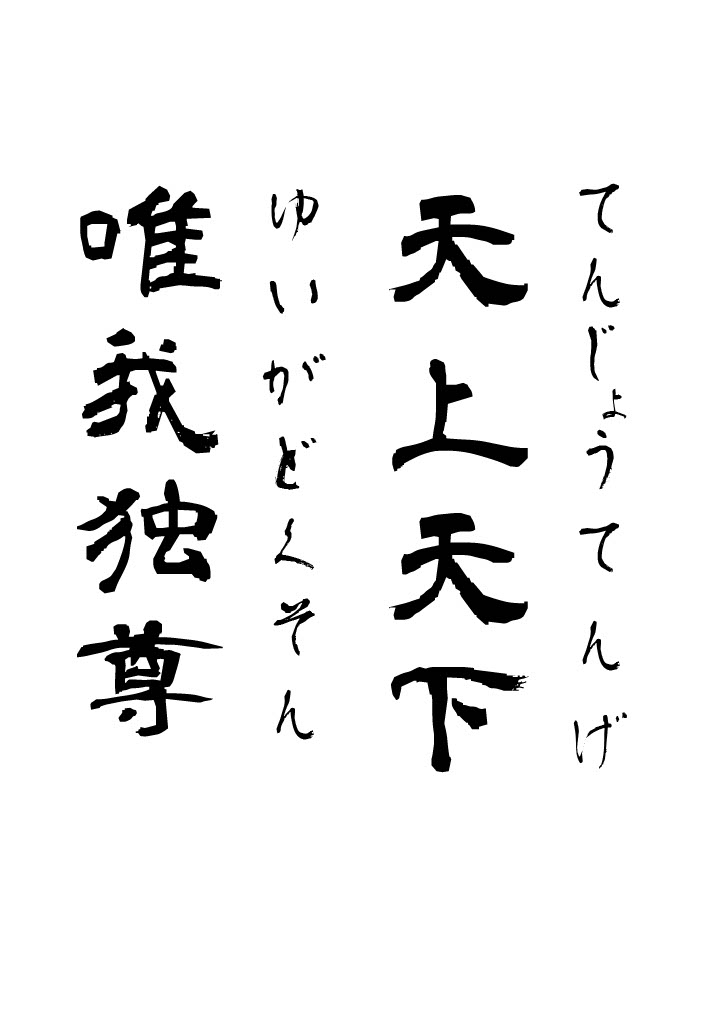 てんじょうてんげ
天上天下
ゆいがどくそん
唯我独尊